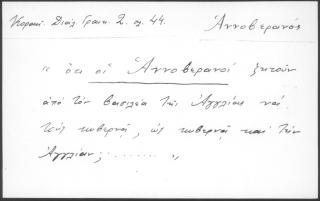 Κοραή. Διάλ. Γραικ. 2. σλ. 44. Ἀννοβερανός
« ὅτι οἱ Ἀννοβερανοί ζητοῦν
ἀπό τόν βασιλέα τῆς Ἀγγλίας νά
τούς κυβερνᾷ, ὡς κυβερνᾷ καί τήν
Ἀγγλίαν; . . . . . . . »